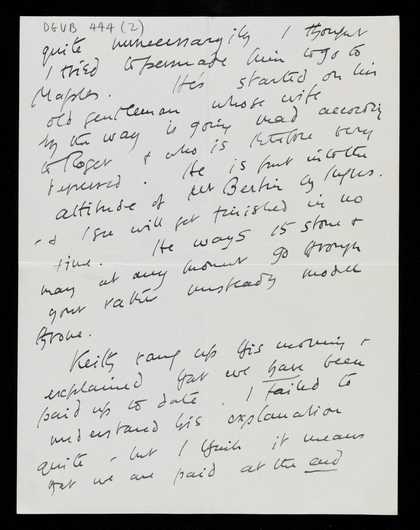 DGVB 444 (2)
quite unnecessarily I thought
I tried to persuade him to go to
Maples. He's started on his
old gentleman whose wife
by the way is going mad according
to Roger & who is therefore very
depressed. He is put into the
attitude of Bertin by Ingres.
& I see will get finished in no
time. He ways 15 stone &
may at any moment go through
your rather unsteady model
throne.
Keith rang up this morning &
explained that we have been
paid up to date. I failed to
understand his explanation
quite - but I think it means
that we are paid at the end